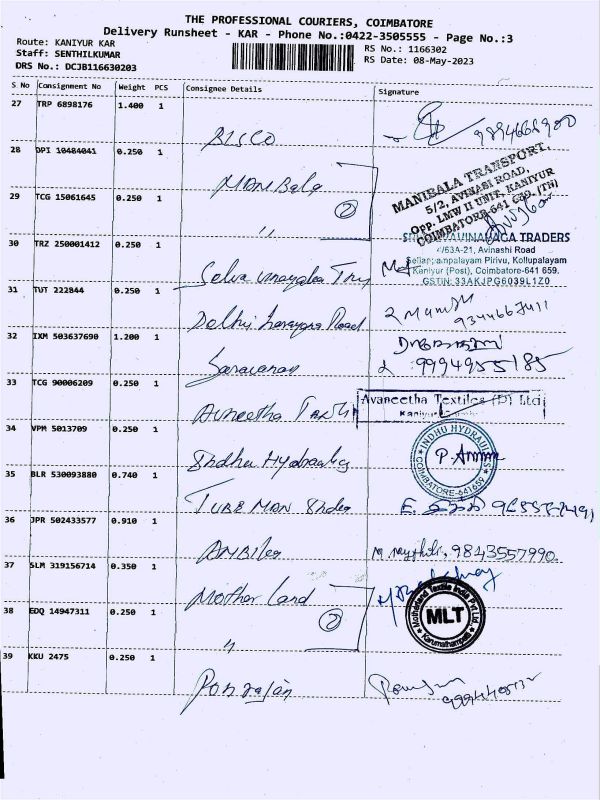 THE PROFESSIONAL COURIERS, COIMBATORE
Delivery Runsheet - KAR - Phone No.:0422-3505555 - Page No.:3
Route: KANIYUR KAR
RS No.: 1166302
Staff: SENTHILKUMAR
RS Date: 08-May-2023
DRS No.: DCJB116630203
S No Consignment No Weight PCS Consignee Details Signature
27 TRP 6898176 1.400 1
BISCO
28 DPI 10484041 0.250 1
MANIBala
2
MANIBALA TRANSPORT,
5/2, AVINASI ROAD,
Opp. LMW II UNIT, KANIYUR
COIMBATORE-641 659. (TN)
29 TCG 15061645 0.250 1
"
30 TRZ 250001412 0.250 1
Selva vinayaka
TRADERS
4/63A-21, Avinashi Road
Pirivu, Kollupalayam
Kaniyur (Post), Coimbatore-641 659.
GSTIN: 33AKJPG6039L1Z0
31 TUT 222844 0.250 1
Delhi Road
9344667411
32 IXM 503637690 1.200 1
Saravanan
33 TCG 90006209 0.250 1
Avneetha
Avaneetha Textiles (P) Ltd
34 VPM 5013709 0.250 1
Indhu Hydraulics
INDHU HYDRAULICS
COIMBATORE-641659
35 BLR 530093880 0.740 1
TUBE MAN India
36 JPR 502433577 0.910 1
9843557990
37 SLM 319156714 0.350 1
Mother Land
2
Motherland Textile India Pvt Ltd
MLT
Karumathampatti
38 EDQ 14947311 0.250 1
"
39 KKU 2475 0.250 1
Ponrajan